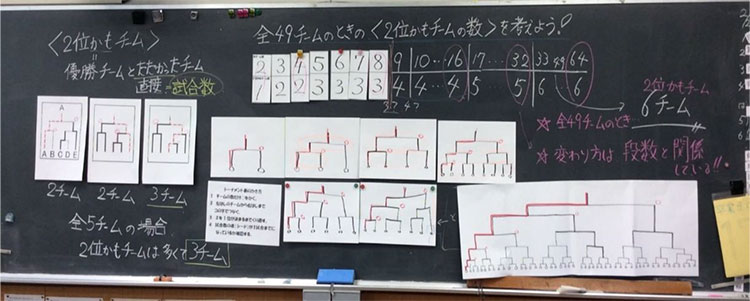 〈2位かもチーム〉
優勝チームとたたかったチーム
直接=試合数
A
A B C D E
2チーム 2チーム 3チーム
全5チームの場合
2位かもチームは多くて3チーム
全49チームのときの〈2位かもチームの数〉を考えよう!
2 3 4 5 6 7 8 9 10…16 17…32 33 49 64
1 2 2 3 3 3 3 4 4…4 5 5 6…6
2位かもチーム
6チーム
☆全49チームのとき…
☆変わり方は段数と関係
している!!